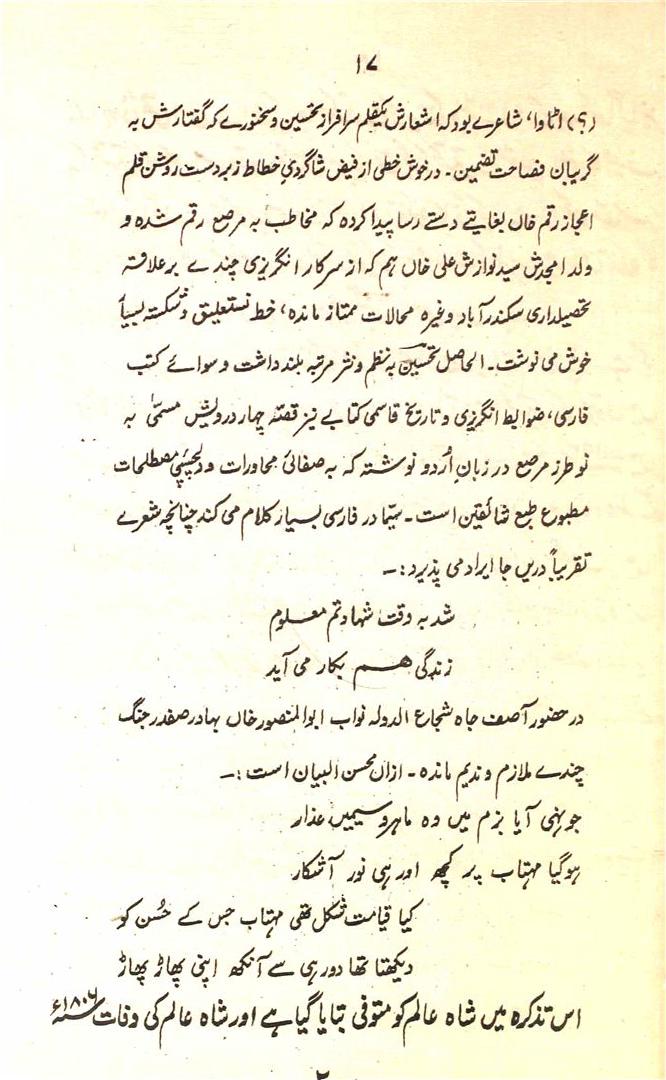 ۱۷
(؟) اٹاوا، شاعرے بود کہ اشعارش یکقلم سرافراز تحسین و سخنورے کہ گفتارش بہ
گریبان فصاحت تضمین۔ درخوش خطی از فیض شاگردیِ خطاط زبردست روشن قلم
اعجاز رقم خاں بغایتے دستے رسا پیدا کردہ کہ مخاطب بہ مرصع رقم شدہ و
ولد امجدش سید نوازش علی خاں ہم کہ از سرکار انگریزی چندے بر علاقہ
تحصیلداری سکندرآباد وغیرہ محالات ممتاز ماندہ، خط نستعلیق و شکستہ بسیار
خوش می نوشت۔ الحاصل تحسین بہ نظم و نثر مرتبہ بلند داشت و سوائے کتب
فارسی، ضوابط انگریزی و تاریخ قاسمی کتابے نیز قصّہ چہار درویش مسمّیٰ بہ
نو طرز مرصع در زبانِ اُردو نوشتہ کہ بہ صفائی محاورات و دلچسپیِ مصطلحات
مطبوع طبع شائقین است۔ سیّما در فارسی بسیار کلام می کند چنانچہ شعرے
تقریباً دریں جا ایراد می پذیرد:۔
شد بہ وقت شہادتم معلوم
زندگی ہم بکار می آید
در حضور آصف جاہ شجاع الدولہ نواب ابوالمنصور خاں بہادر صفدر جنگ
چندے ملازم و ندیم ماندہ۔ ازاں محسن البیان است:۔
جونہی آیا بزم میں وہ ماہرو سیمیں عذار
ہوگیا مہتاب پر کچھ اور ہی نور آشکار
کیا قیامت شکل تھی مہتاب جس کے حُسن کو
دیکھتا تھا دور ہی سے آنکھ اپنی پھاڑ پھاڑ
اس تذکرہ میں شاہ عالم کو متوفی بتایا گیا ہے اور شاہ عالم کی وفات ۱۸۰۶ء
۲